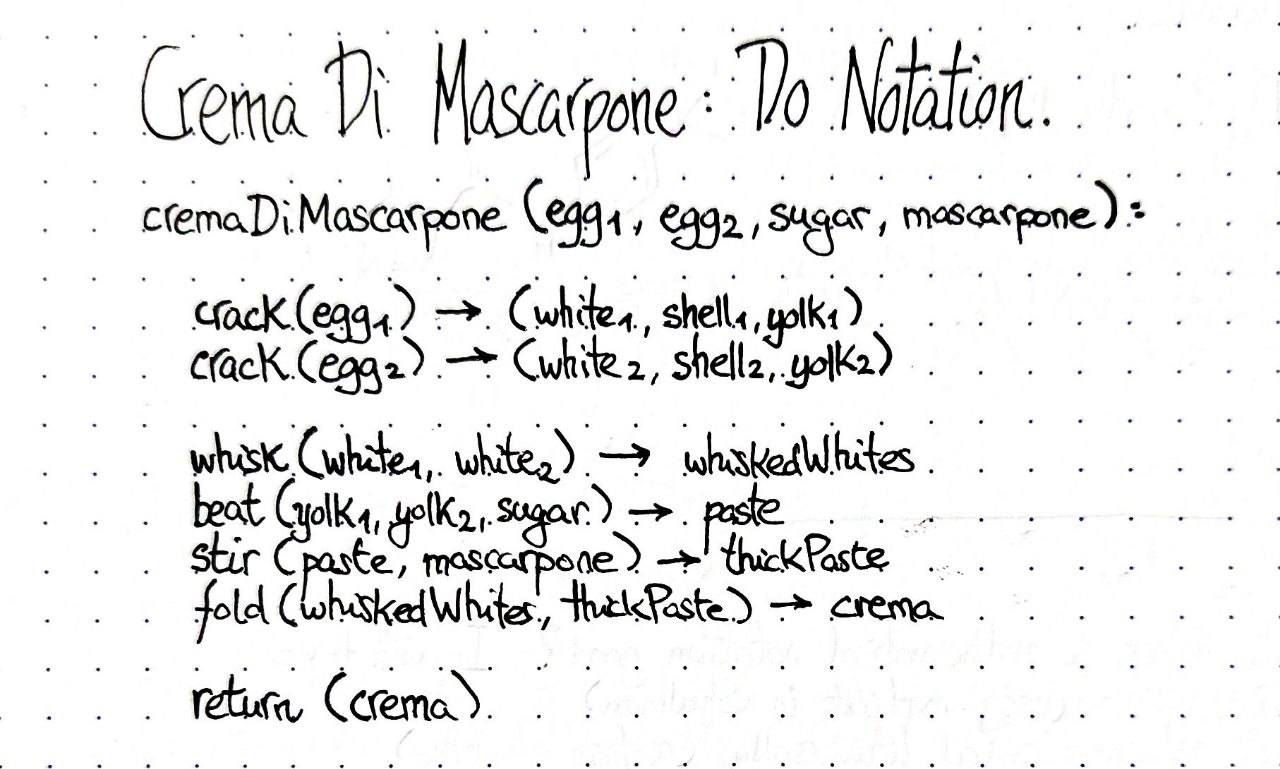 Crema Di Mascarpone: Do Notation.
cremaDiMascarpone (egg1, egg2, sugar, mascarpone):
crack (egg1) → (white1, shell1, yolk1)
crack (egg2) → (white2, shell2, yolk2)
whisk (white1, white2) → whiskedWhites
beat (yolk1, yolk2, sugar) → paste
stir (paste, mascarpone) → thickPaste
fold (whiskedWhites, thickPaste) → crema
return (crema)